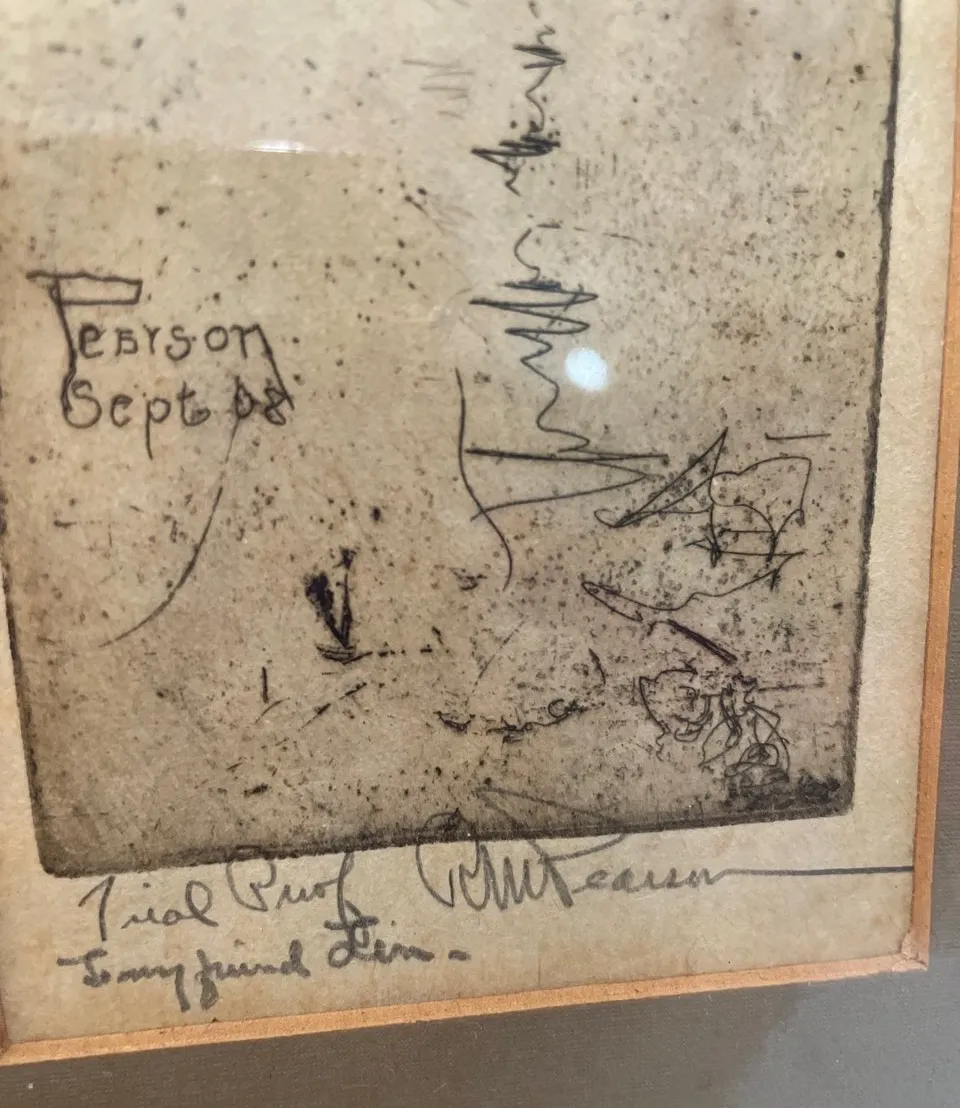 Pearson
Sept 08
Trial Proof Pearson
To my friend